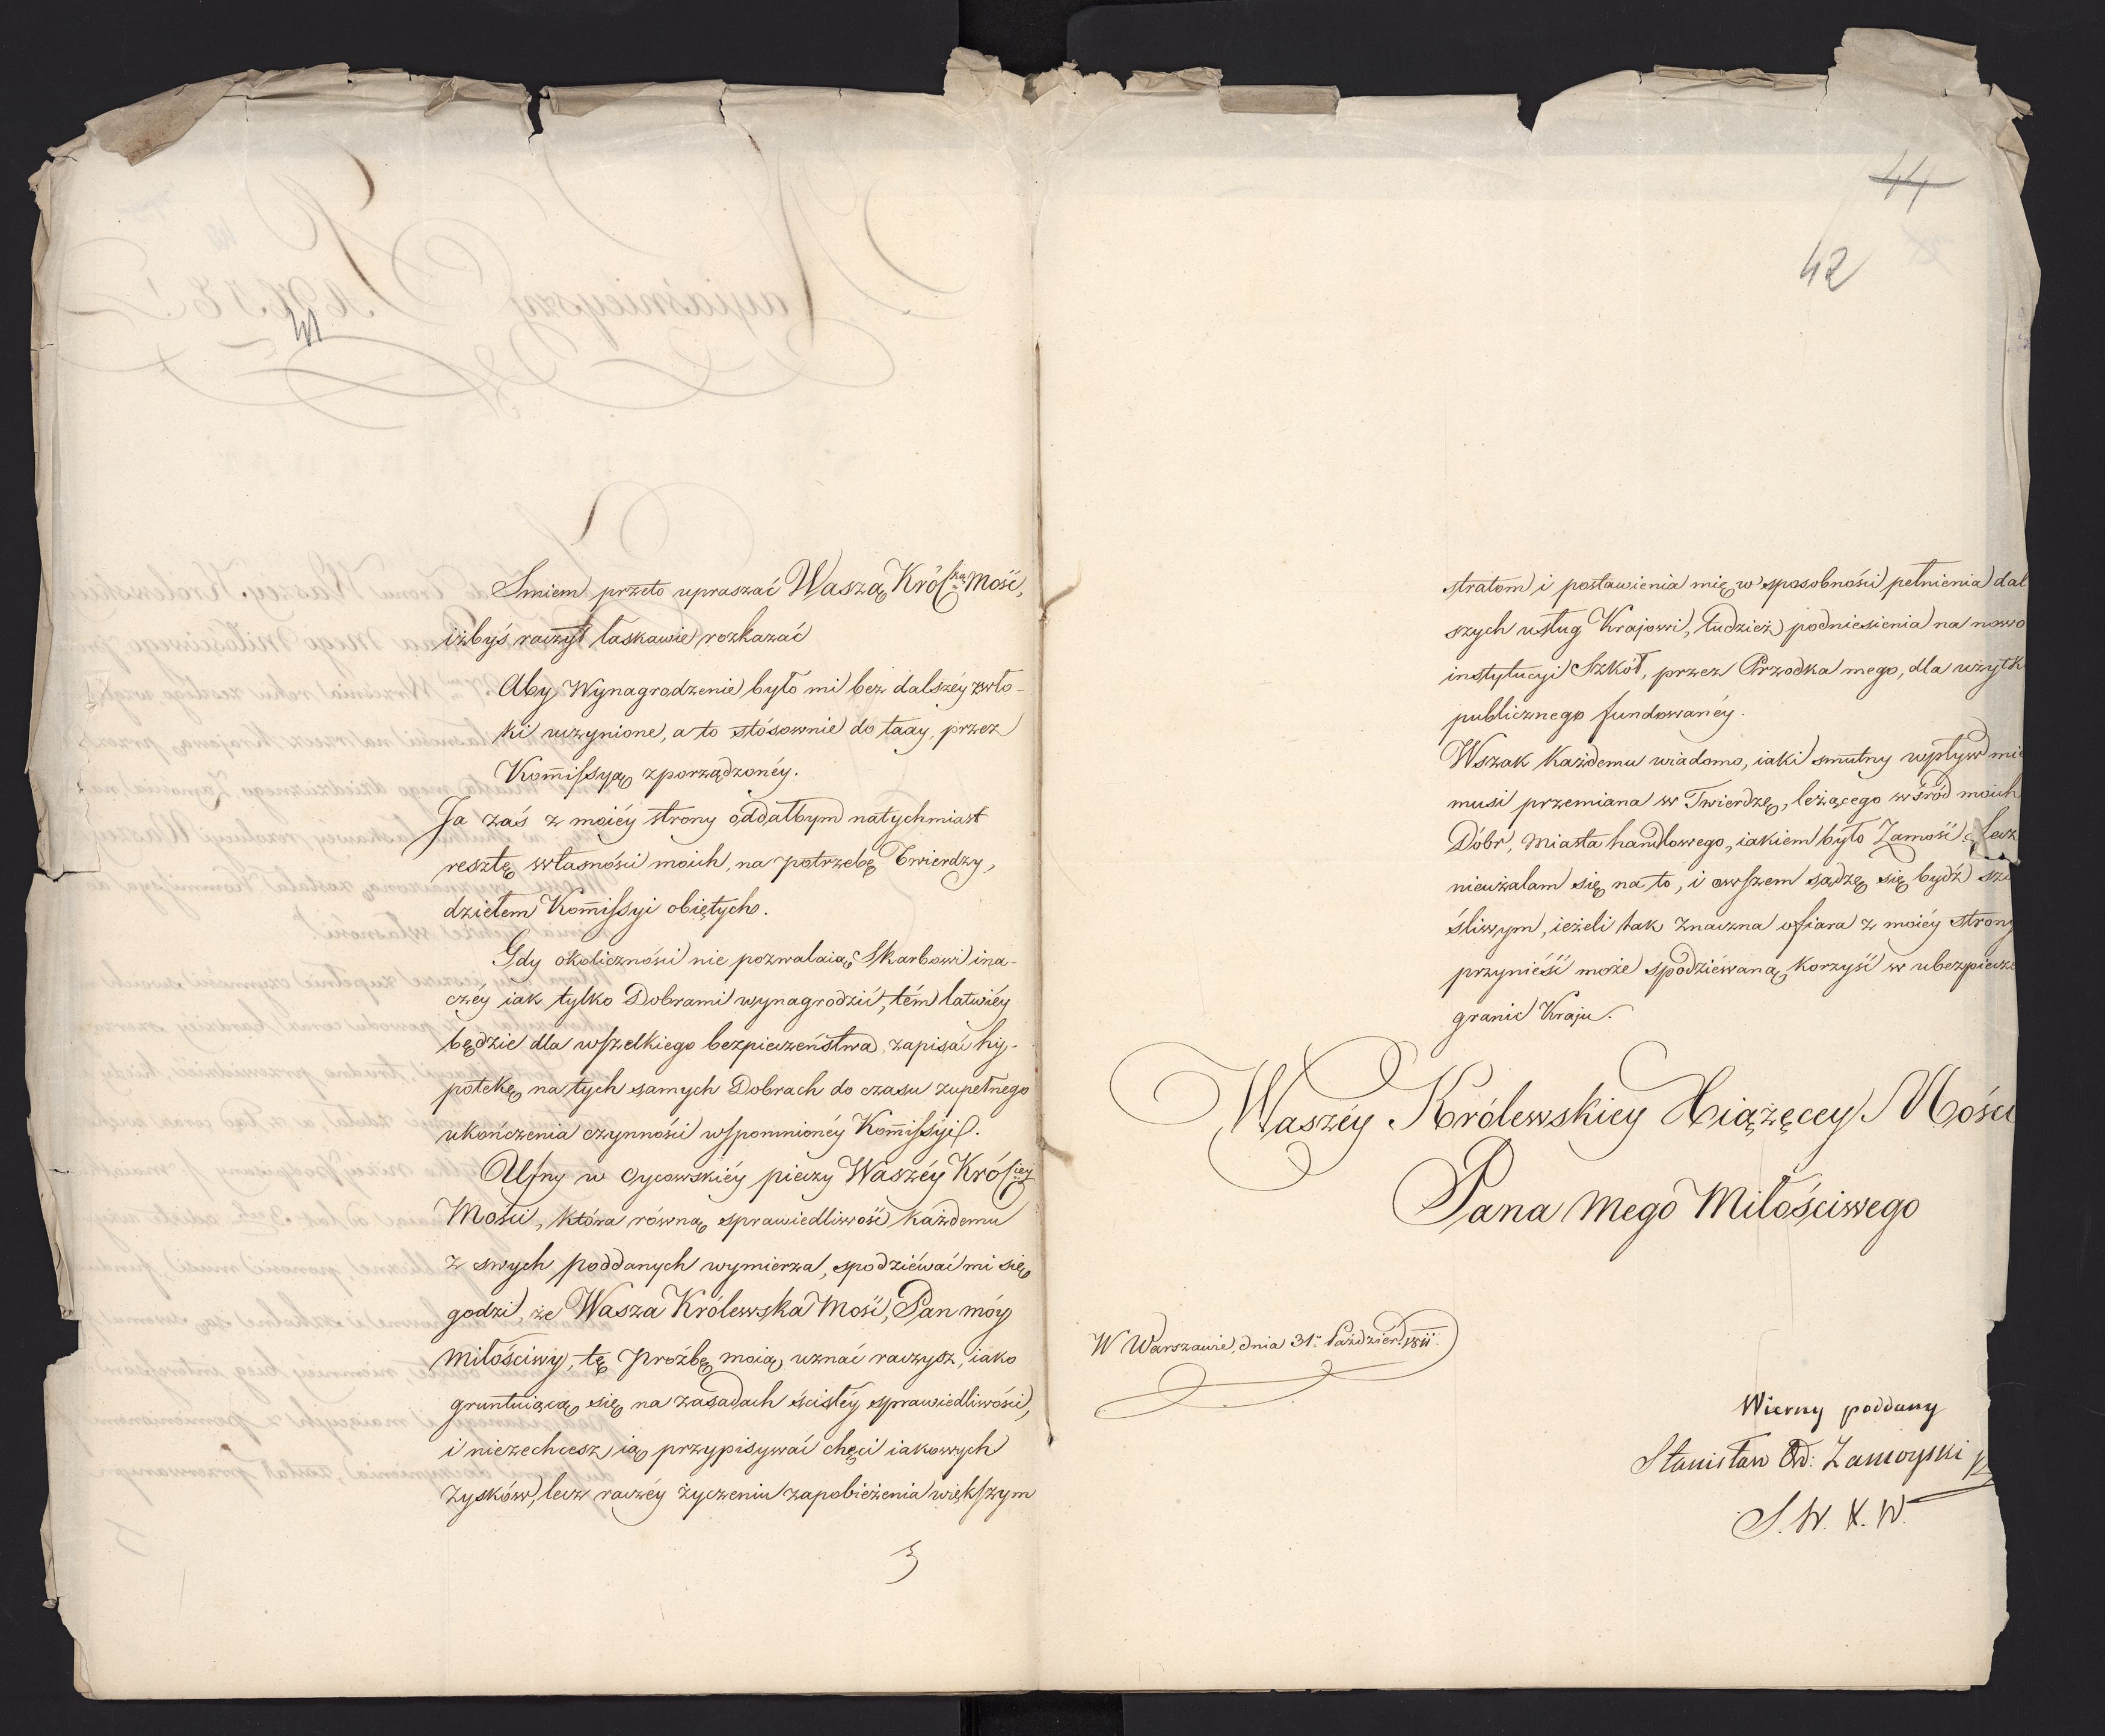 41
Smiem przeto upraszać Waszą Król.ską Mość,
iżbyś raczył łaskawie rozkazać
Aby Wynagrodzenie było mi bez dalszéy zwło-
ki uczynione, a to stósownie do taxy, przez
Kom̄issyą zporządzonéy.
Ja zaś z moiéy strony oddałbym natychmiast
resztę własności moich, na potrzebę Twierdzy,
dziełem Kom̄issyi obiętych.
Gdy okoliczności nie pozwalaią Skarbowi ina-
czéy iak tylko Dobrami wynagrodzić, tém łatwiéy
będzie dla wszelkiego bezpieczeństwa, zapisać hy-
potekę na tych samych Dobrach do czasu zupełnego
ukończenia czynności wspomnionéy Kom̄issyi.
Ufny w Oycowskiéy pieczy Waszéy Król.iey
Mości, która równą sprawiedliwość każdemu
z swych poddanych wymierza, spodziéwać mi się
godzi, że Wasza Królewska Mość, Pan móy
Miłościwy, tę proźbę moią uznać raczysz, iako
gruntuiącą się na zasadach ścisłéy sprawiedliwości,
i niezechcesz ią przypisywać chęci iakowych
zysków, lecz raczéy życzeniu zapobieżenia większym
3
44
42
stratom i postawienia mię w sposobności pełnienia dal
szych usług Krajowi, tudzież podniesienia na nowo
instytucyi Szkół, przez Przodka mego, dla użytk
publicznego fundowanéy.
Wszak każdemu wiadomo, iaki smutny wpływ mie
musi przemiana w Twierdzę, leżącego wśród moich
Dóbr, Miasta handlowego, iakiem było Zamość; lecz
nieużalam się na to, i owszem sądzę się bydź szc
śliwym, ieżeli tak znaczna ofiara z moiéy strony
przynieść może spodziéwaną korzyść w ubezpiecze
granic Kraju.
Waszéy Królewskiey Xiążęcey Mości
Pana Mego Miłościwego
W Warszawie, dnia 31. Paździer. 1811.
Wierny poddany
Stanisław Ord: Zamoyski
S. W. X. W.